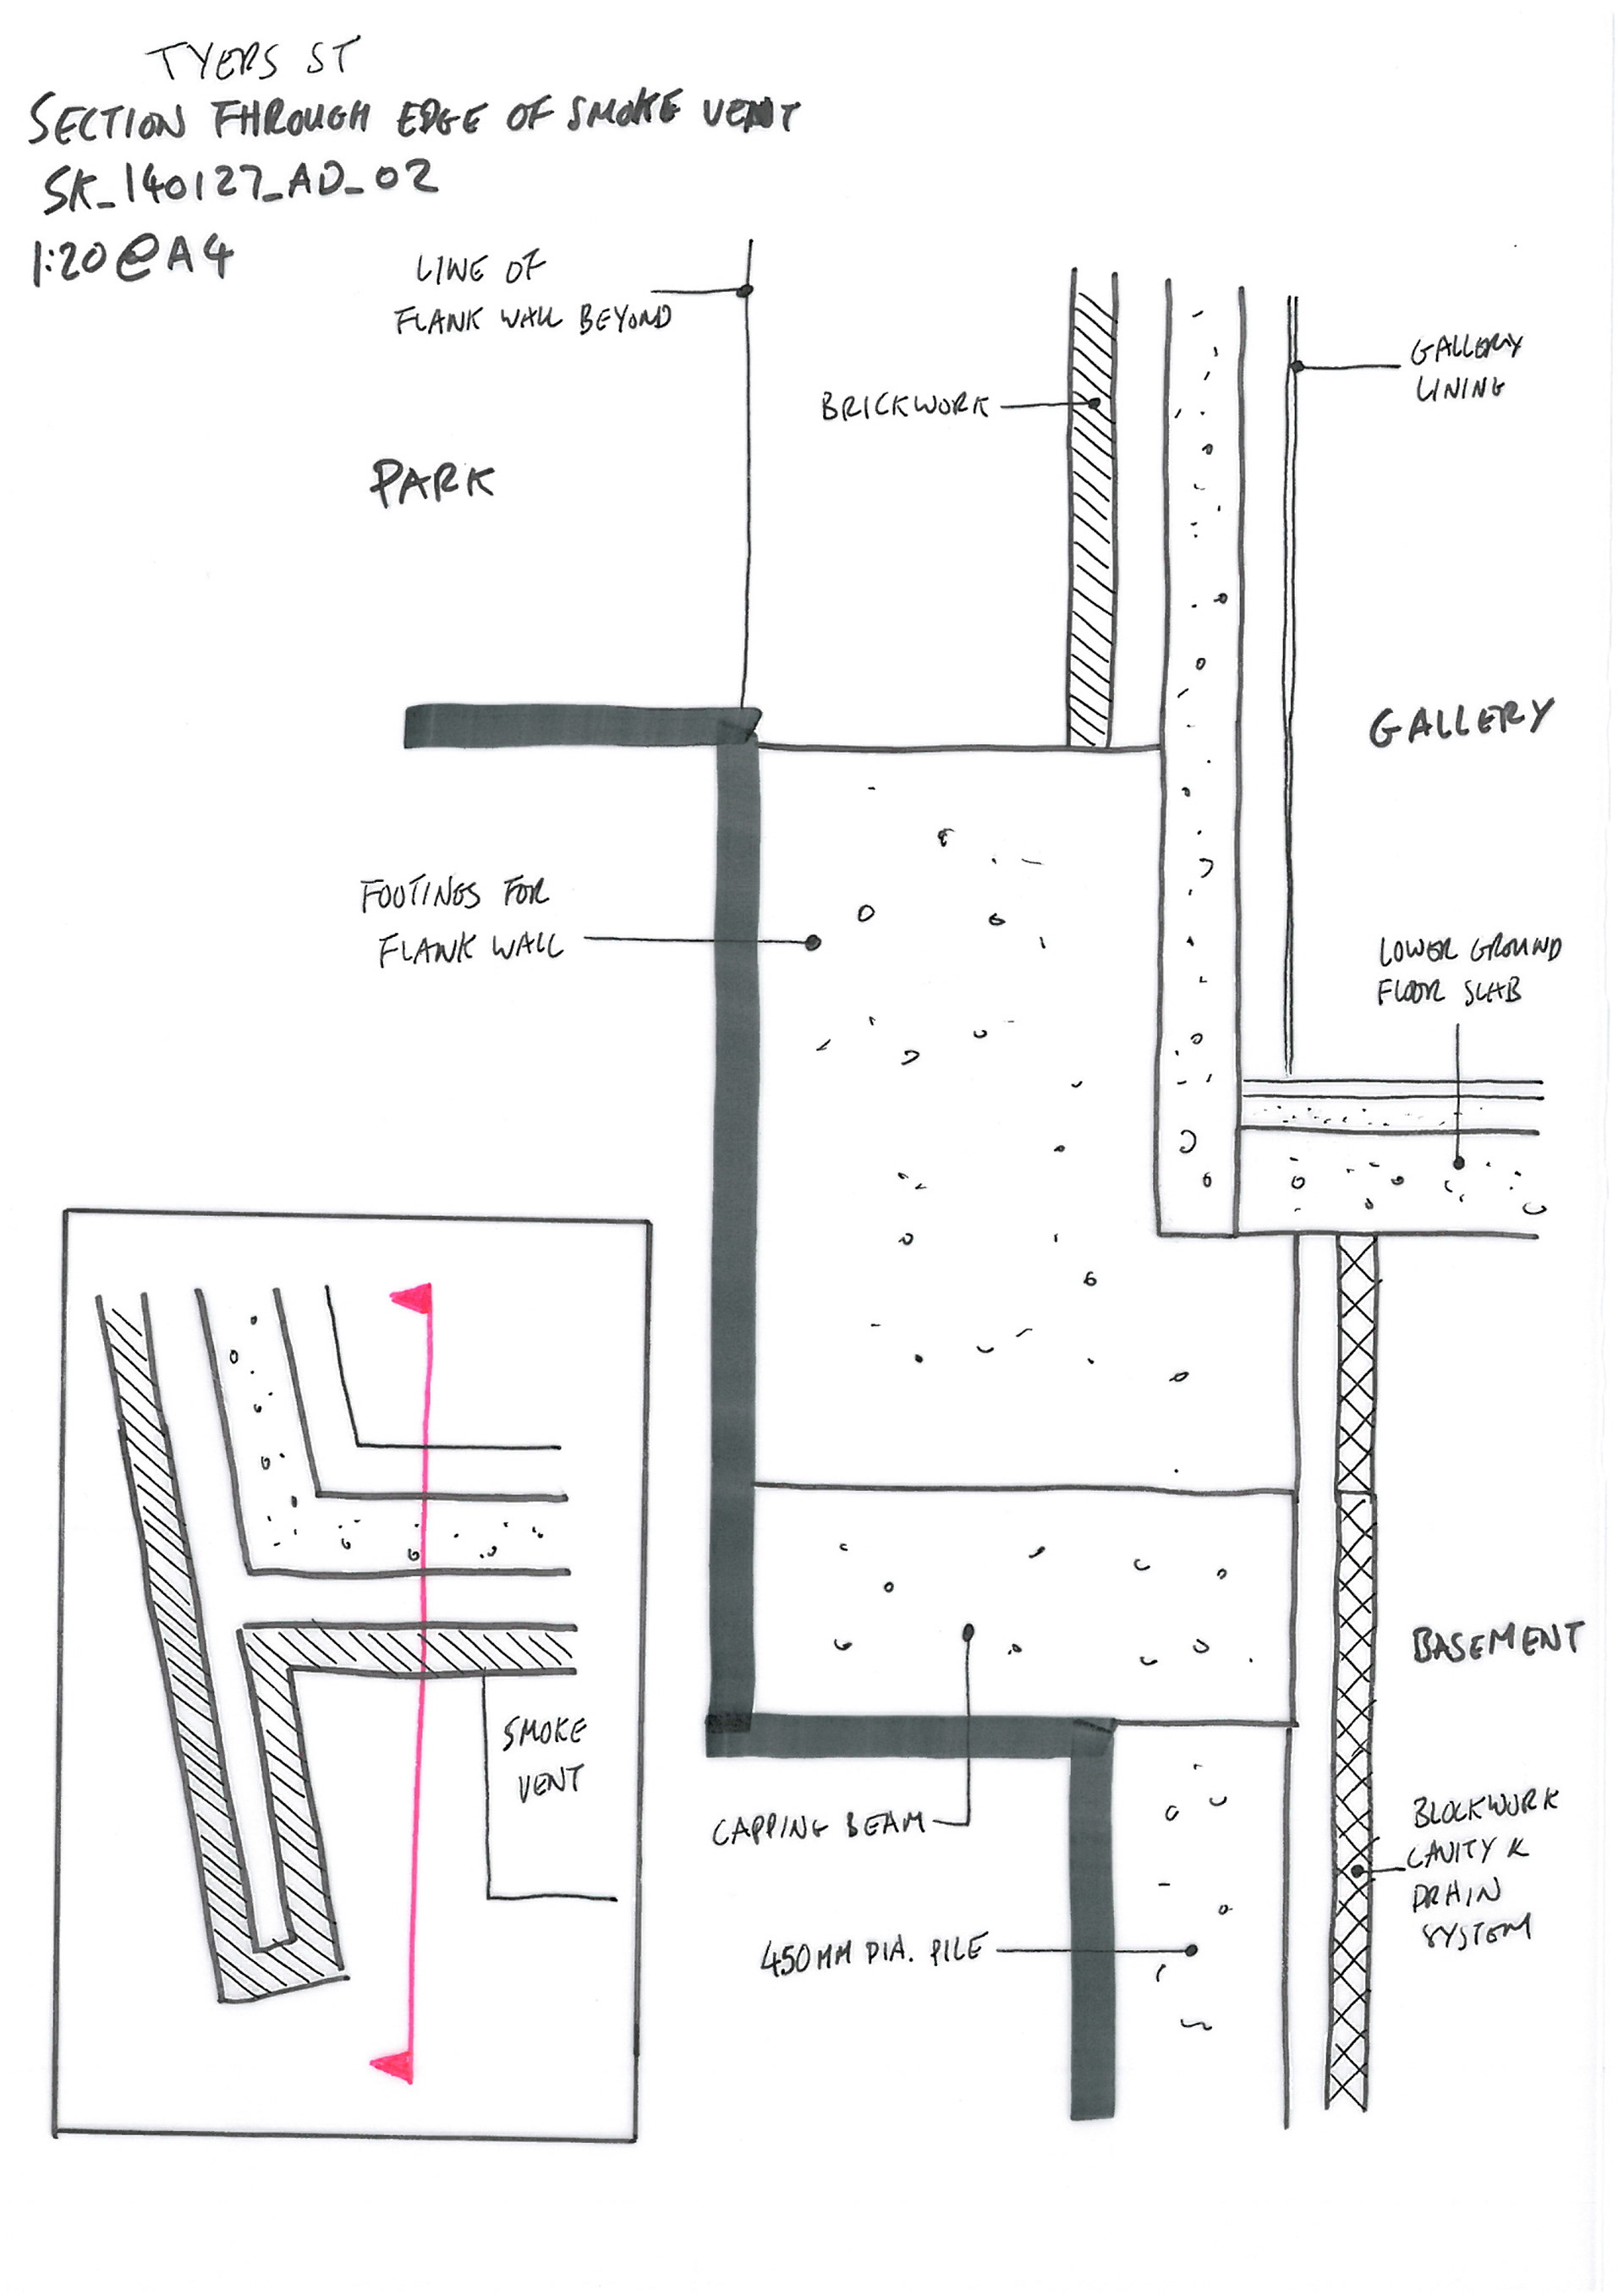 TYERS ST
SECTION THROUGH EDGE OF SMOKE VENT
SK_140127_AD_02
1:20@A4
LINE OF
FLANK WALL BEYOND
GALLERY
LINING
BRICKWORK
PARK
GALLERY
FOOTINGS FOR
FLANK WALL
LOWER GROUND
FLOOR SLAB
BASEMENT
SMOKE
VENT
CAPPING BEAM
BLOCKWORK
CAVITY &
DRAIN
SYSTEM
450MM DIA. PILE